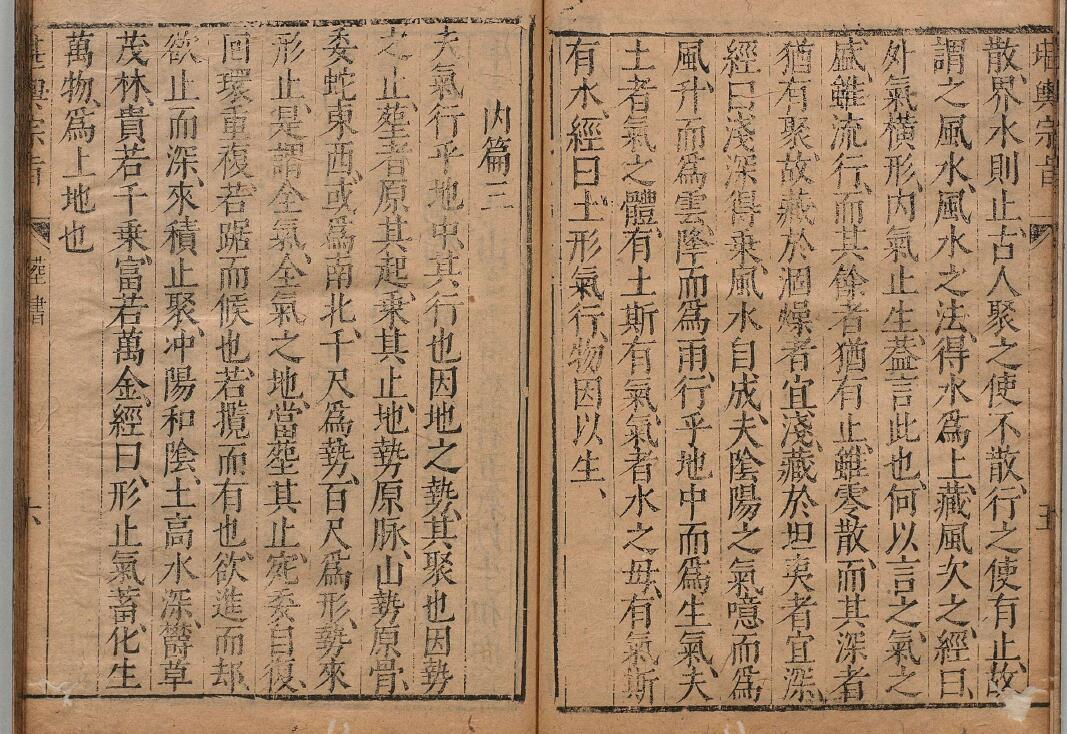 堪輿宗旨
五
散、界水則止、古人聚之使不散、行之使有止、故
謂之風水、風水之法、得水爲上、藏風次之、經曰、
外氣橫形、内氣止生、葢言此也、何以言之、氣之
盛、雖流行、而其餘者猶有止、雖零散、而其深者
猶有聚、故藏於涸燥者宜淺、藏於坦夷者宜深、
經曰淺深得乗、風水自成、夫陰陽之氣、噫而爲
風、升而爲雲、降而爲雨、行乎地中而爲生氣、夫
土者氣之體、有土斯有氣、氣者水之母、有氣斯
有水、經曰、土形氣行、物因以生、
内篇三
夫氣行乎地中、其行也因地之勢、其聚也因勢
之止、塟者原其起、乗其止、地勢原脉、山勢原骨、
委蛇東西、或爲南北、千尺爲勢、百尺爲形、勢來
形止、是謂全氣、全氣之地、當塟其止、宛委自復、
回環重複、若踞而候也、若攬而有也、欲進而却、
欲止而深、來積止聚、冲陽和陰、土高水深、欝草
茂林、貴若千乗、富若萬金、經曰、形止氣蓄、化生
萬物、爲上地也
塟書
六